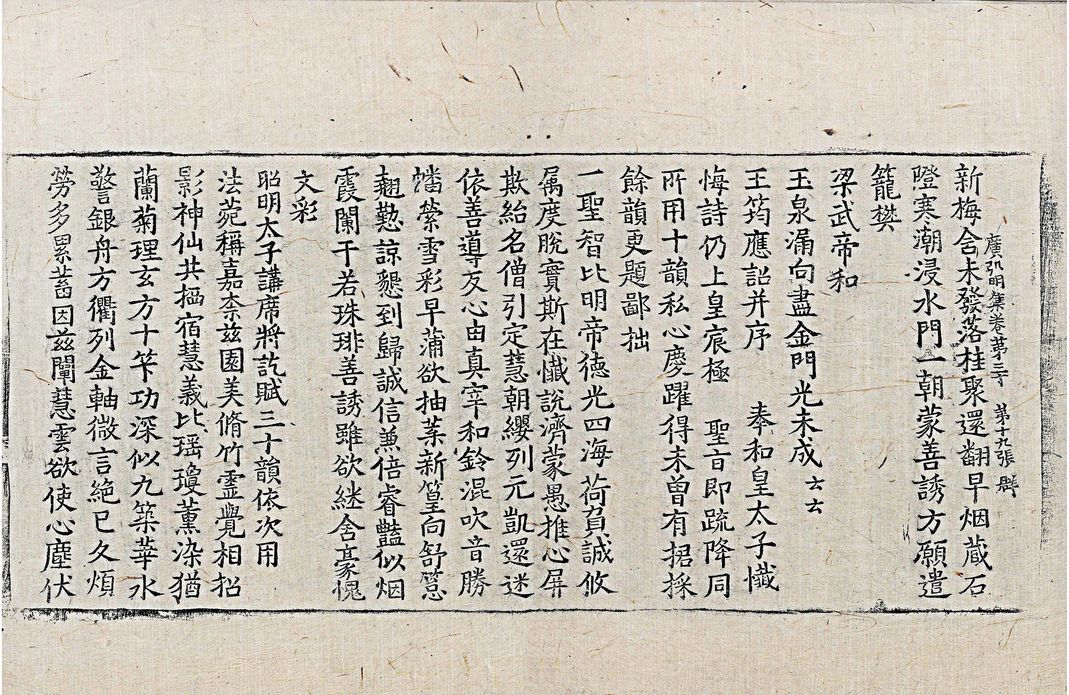 新梅含未發落桂聚還翻早烟藏石
廣弘明集卷第三十 第十九張 群
隥寒潮浸水門一朝蒙善誘方願遣
籠樊
梁武帝和
玉泉漏向盡金門光未成云云
王筠應詔并序 奉和皇太子懺
悔詩仍上皇宸極 聖旨即疏降同
所用十韻私心慶躍得未曾有捃採
餘韻更題鄙拙
一聖智比明帝德光四海荷負誠攸
属度脫實斯在懺說濟蒙愚推心屏
欺紿名僧引定慧朝纓列元凱還迷
依善導反心由真宰和鈴混吹音勝
幡縈雪彩早蒲欲抽葉新篁向舒䈚
翹懃諒懇到歸誠信兼倍睿豔似烟
霞闌干若珠琲善誘雖欲継含豪愧
文彩
昭明太子講席將訖賦三十韻依次用
法菀稱嘉柰兹園美脩竹靈覺相招
影神仙共㨨宿慧義比瑶瓊薰染猶
蘭菊理玄方十笇功深似九築華水
警銀舟方衢列金軸微言絕已久煩
勞多累蓄因兹闡慧雲欲使心塵伏